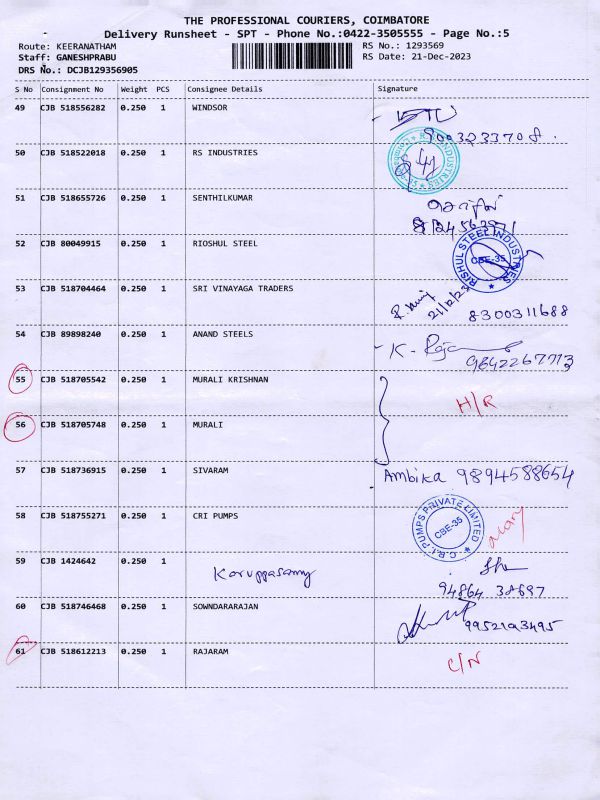 THE PROFESSIONAL COURIERS, COIMBATORE
Delivery Runsheet - SPT - Phone No.:0422-3505555 - Page No.:5
Route: KEERANATHAM
RS No.: 1293569
Staff: GANESHPRABU
RS Date: 21-Dec-2023
DRS No.: DCJB129356905
S No Consignment No Weight PCS Consignee Details Signature
49 CJB 518556282 0.250 1 WINDSOR
9003233708.
50 CJB 518522018 0.250 1 RS INDUSTRIES
RS INDUSTRIES
51 CJB 518655726 0.250 1 SENTHILKUMAR
8124563971
52 CJB 80049915 0.250 1 RIOSHUL STEEL
RISHUL STEEL INDUSTRIES
CBE-35
53 CJB 518704464 0.250 1 SRI VINAYAGA TRADERS
21/12/23
8300311688
54 CJB 89898240 0.250 1 ANAND STEELS
K. Raja
9842267713
55 CJB 518705542 0.250 1 MURALI KRISHNAN
H/R
56 CJB 518705748 0.250 1 MURALI
57 CJB 518736915 0.250 1 SIVARAM Ambika 9894588654
58 CJB 518755271 0.250 1 CRI PUMPS
C.R.I. PUMPS PRIVATE LIMITED
CBE-35
59 CJB 1424642 0.250 1
Karuppasamy
60 CJB 518746468 0.250 1 SOWNDARARAJAN
61 CJB 518612213 0.250 1 RAJARAM
C/N